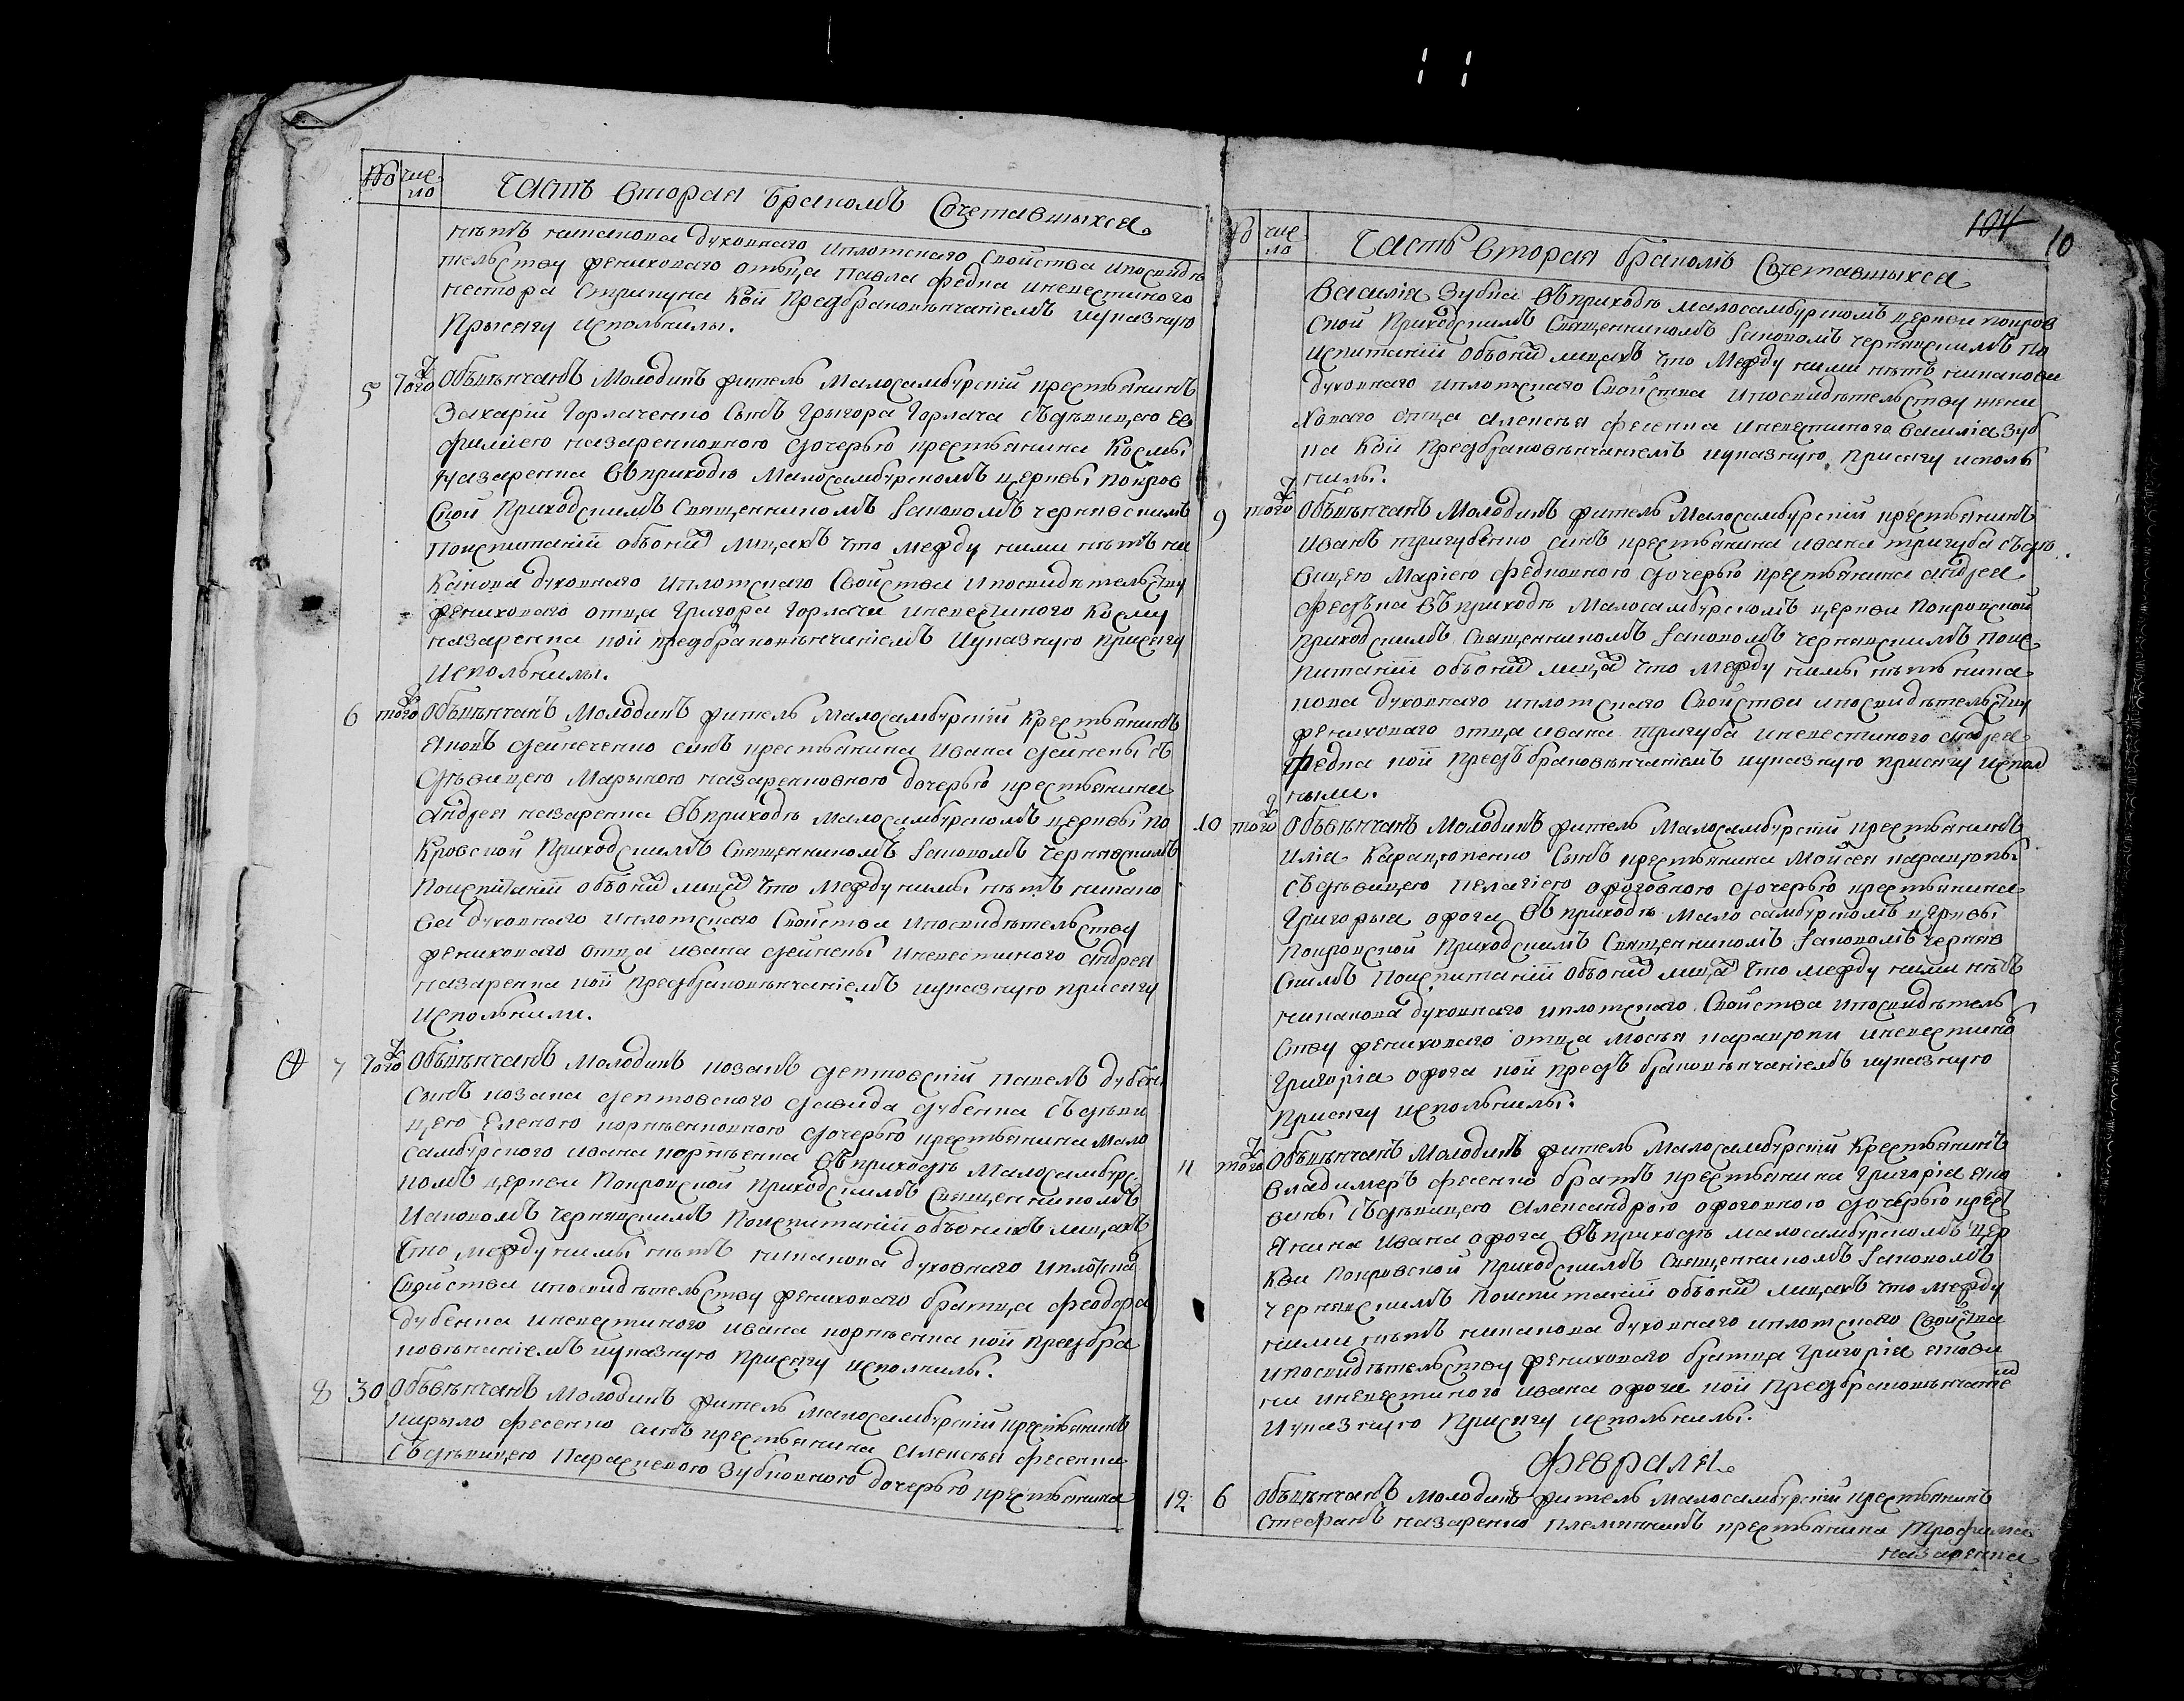 № чис
ло
Часть вторая бракомъ Сочетавшыхся
нѣтъ никакова духовнаго иплотскаго Свойства ипосвидѣ
тельству жениховаго отьца Павла Федка иневестиного
нестора Скрипуна кой предбраковѣнчаніемъ иуказную
прысягу исполънилы.
5 того Объвѣнчанъ Молодикъ житель Малосамбурскій крестьянинъ
Захарій Горлаченко Сынъ Грыгора Горлача съдѣвицею Ев
фиміею назаренковною дочерью крестьянина Космы
Назаренка въприходѣ Малосамбурскомъ церквы покров
Ской Приходскимъ Священникомъ Іаковомъ Чернявскимъ
Поиспитаніи обѣоихъ лицахъ что между ними нѣтъ ни
какова духовнаго иплотскаго Свойства ипосвидѣтельству
жениховаго отца Григора Горлача иневестиного Космы
назаренка кой предбраковѣнчаніемъ иуказную присягу
исполънилы.
6 того Объвѣнчанъ Молодикъ житель Малосамбурскій крестьянинъ
Яковъ дейнеченко синъ крестьянина Ивана дейнекы съ
дѣвицею Марыною назаренковною дочерью крестьянина
Андрея назаренка въприходѣ Малосамбурскомъ церквы по
кровской Приходскимъ Священникомъ Іаковомъ Чернявскимъ
Поиспитаніи обѣоихъ лицахъ что между нимы нѣтъ никако
ва духовнаго иплотскаго Свойства ипосвидѣтельству
жениховаго отца ивана дейнекы иневестиного андрея
назаренка кой предбраковѣнчаніемъ иуказную присягу
исполънили.
7 того Объвѣнчанъ Молодикъ козакъ дептовскій Павелъ дубенк
Сынъ козака дептовского Давида дубенка съдѣви
цею Еленою корнѣенковною дочерью крестьянина мало
самбурского ивана корнѣенка въприходѣ Малосамбурс
комъ церкви Покровской приходскимъ Священникомъ
Иаковомъ Чернявскимъ Поиспитаніи объоихъ лицахъ
Что между нимы нѣтъ никакова духовнаго иплотска
Свойства ипосвидѣтельству жениховаго братца феодора
дубенка иневестиного ивана корнѣенка кой предбра
ковѣнчаніемъ иуказную присягу исполнилы.
8 30 Объвѣнчанъ Молодикъ житель малосамбурскій крестьянинъ
кирыло фесенко синъ крестьянина алексѣя фесенка
Съдѣвицею Параскевою зубковною дочерью крестьянина
104 10
№ чис
ло
Часть вторая бракомъ Сочетавшыхся
Василія Зубка въприходѣ малосамбурскомъ церкви покров
ской Приходскимъ Священникомъ Іаковомъ Чернявскимъ по
испитаніи обѣоихъ лицахъ что Между ними нѣтъ никакови
духовнаго иплотскаго Свойства ипосвидѣтельству жени
ховаго отца алексѣя фесенка иневестиного василія зуб
ка кой предбраковѣнчаніемъ иуказную присягу исполъ
нилы.
9 того Объвѣнчанъ Молодикъ житель Малосамбурскій крестьянинъ
Иванъ тригубенко синъ крестьянина ивана тригуба съдѣ
вицею Маріею федковною дочерью крестьянина андрея
въприходѣ Малосамбурскомъ церкви Покровской
приходскимъ Священникомъ Іаковомъ Чернявскимъ поис
питаніи обѣоихъ лицахъ что между нимы нѣтъ ника
кова духовнаго иплотскаго Свойства ипосвидѣтельству
жениховаго отца ивана тригуба иневестиного андрея
Федка кой предъбраковѣнчаніемъ иуказную присягу испол
нили.
10 того Объвѣнчанъ Молодикъ житель Малосамбурскій крестьянинъ
Илія Карацюпенко Сынъ крестьянина Мойсея карацюпы
Съдѣвицею Пелагіею ожоговною дочерью крестьянина
Григорыя ожога въприходѣ Мало самбурскомъ церквы
Покровской Приходскимъ Священникомъ Іаковомъ Черняв
скимъ Поиспитаніи обѣоихъ лицахъ что между ними нѣтъ
никакова духовнаго иплотскаго Свойства ипосвидѣтель
ству жениховаго отца Мосѣя карацюпи иневестиного
Григорія ожога кой предъ браковѣнчаніемъ иуказную
Присягу исполънилы.
11 того Объвѣнчанъ Молодикъ житель Малосамбурскій Крестьянинъ
Владимеръ фесенко братъ крестьянина Григорія яко
вины Съдѣвицею Александрою ожоговною дочерью крест
янина Ивана ожога въприходѣ малосамбурскомъ цер
кви Покровской Приходскимъ Священникомъ Іаковомъ
Чернявскимъ Поиспитаніи обѣоихъ лицахъ что между
ними нѣтъ никакова духовнаго иплотскаго Свойства
ипосвидѣтельству жениховаго братца Григорія якови
ни иневестиного ивана ожога кой предбраковѣнчаніе
Иуказную Присягу исполънилы.
Февраля
12 6 Объвѣнчанъ Молодикъ житель малосамбурскій крестьянинъ
Стефанъ назаренко племянникъ крестьянина Трофима
назаренка